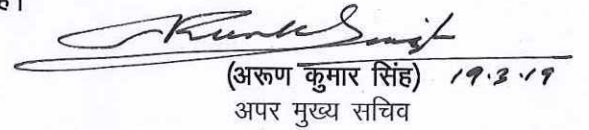 है।
(अरूण कुमार सिंह) 19.3.19
अपर मुख्य सचिव